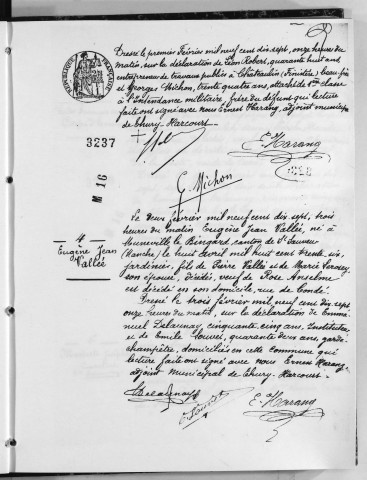 Dressé le premier Février mil neuf cent dix sept, onze heures du
matin, sur la déclaration de Léon Robert, quarante huit ans
entrepreneur de travaux publics à Châteaulin (Finistère) beau-frère
et Georges Michon, trente quatre ans, attaché de 1ère classe
à l'Intendance militaire, frère du défunt qui lecture
faite ont signé avec nous Ernest Harang, adjoint municipal
de Thury-Harcourt.
RÉPUBLIQUE FRANÇAISE
E. Harang
3237
M 16
G. Michon
4
Eugène Jean
Vallée
Le deux février mil neuf cent dix sept, trois
heures du matin Eugène Jean Vallée, né à
Muneville le Bingard, canton de St Sauveur
(Manche) le huit avril mil huit cent trente six,
jardinier, fils de Pierre Vallée et de Marie
son épouse, décédés, veuf de Rose Anselme
est décédé en son domicile, rue de Condé.
Dressé le trois février mil neuf cent dix sept
onze heures du matin, sur la déclaration de Emma-
nuel Delaunay, cinquante cinq ans, Instituteur
et de Emile Louvet, quarante deux ans, garde-
champêtre, domiciliés en cette commune qui
lecture faite ont signé avec nous Ernest Harang
adjoint municipal de Thury-Harcourt.
Delaunay
E. Louvet
E. Harang